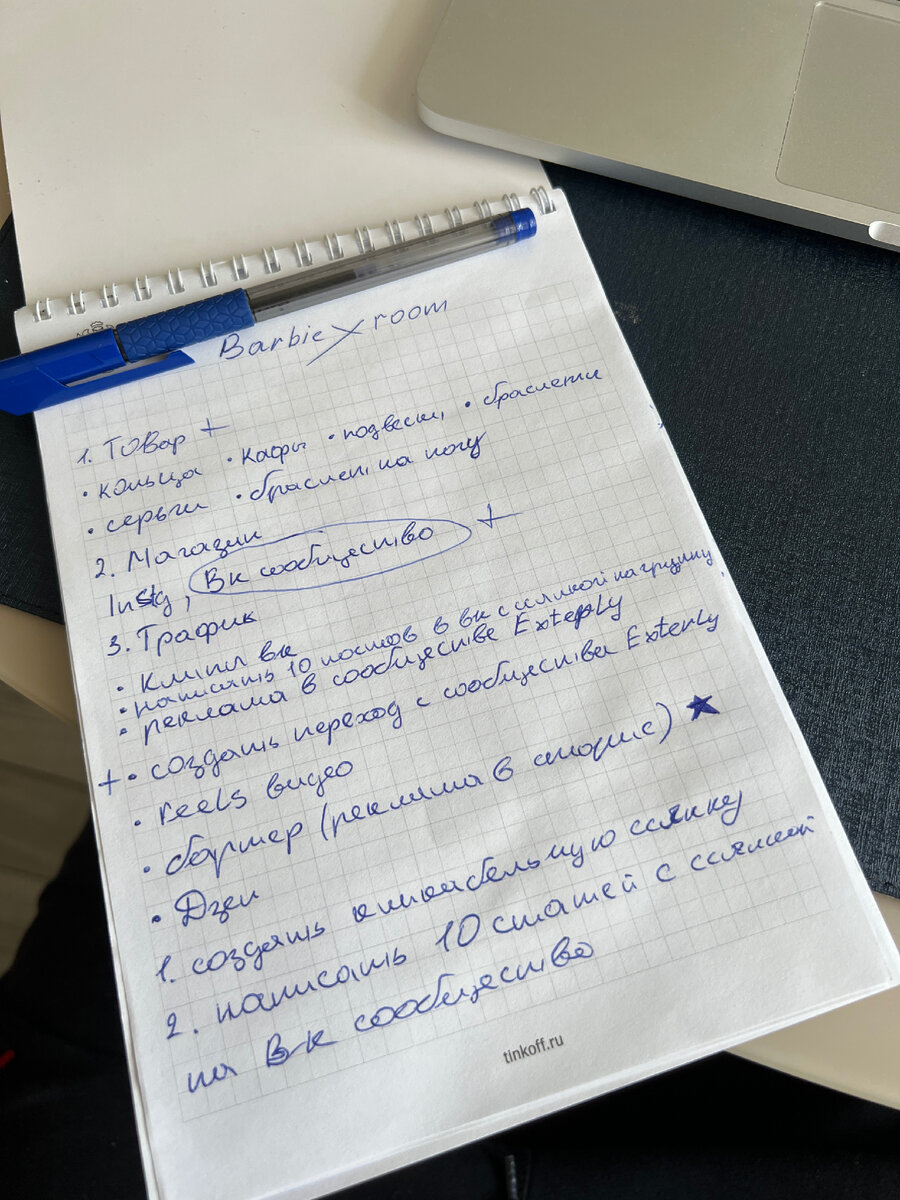 Barbie room
1. Товар +
• кольца • кафы • подвески, • браслеты
• серьги • браслеты на ногу
2. Магазин
Instg, Вк сообщество +
3. Трафик
• Клипы вк
• написать 10 постов в вк с ссылкой на группу
• реклама в сообществе Exterly
+ • создать переход с сообщества Exterly
• reels видео
• бартер (реклама в сторис) ★
• Дзен
1. создать кликабельную ссылку
2. написать 10 статей с ссылкой
на Вк сообщество
tinkoff.ru